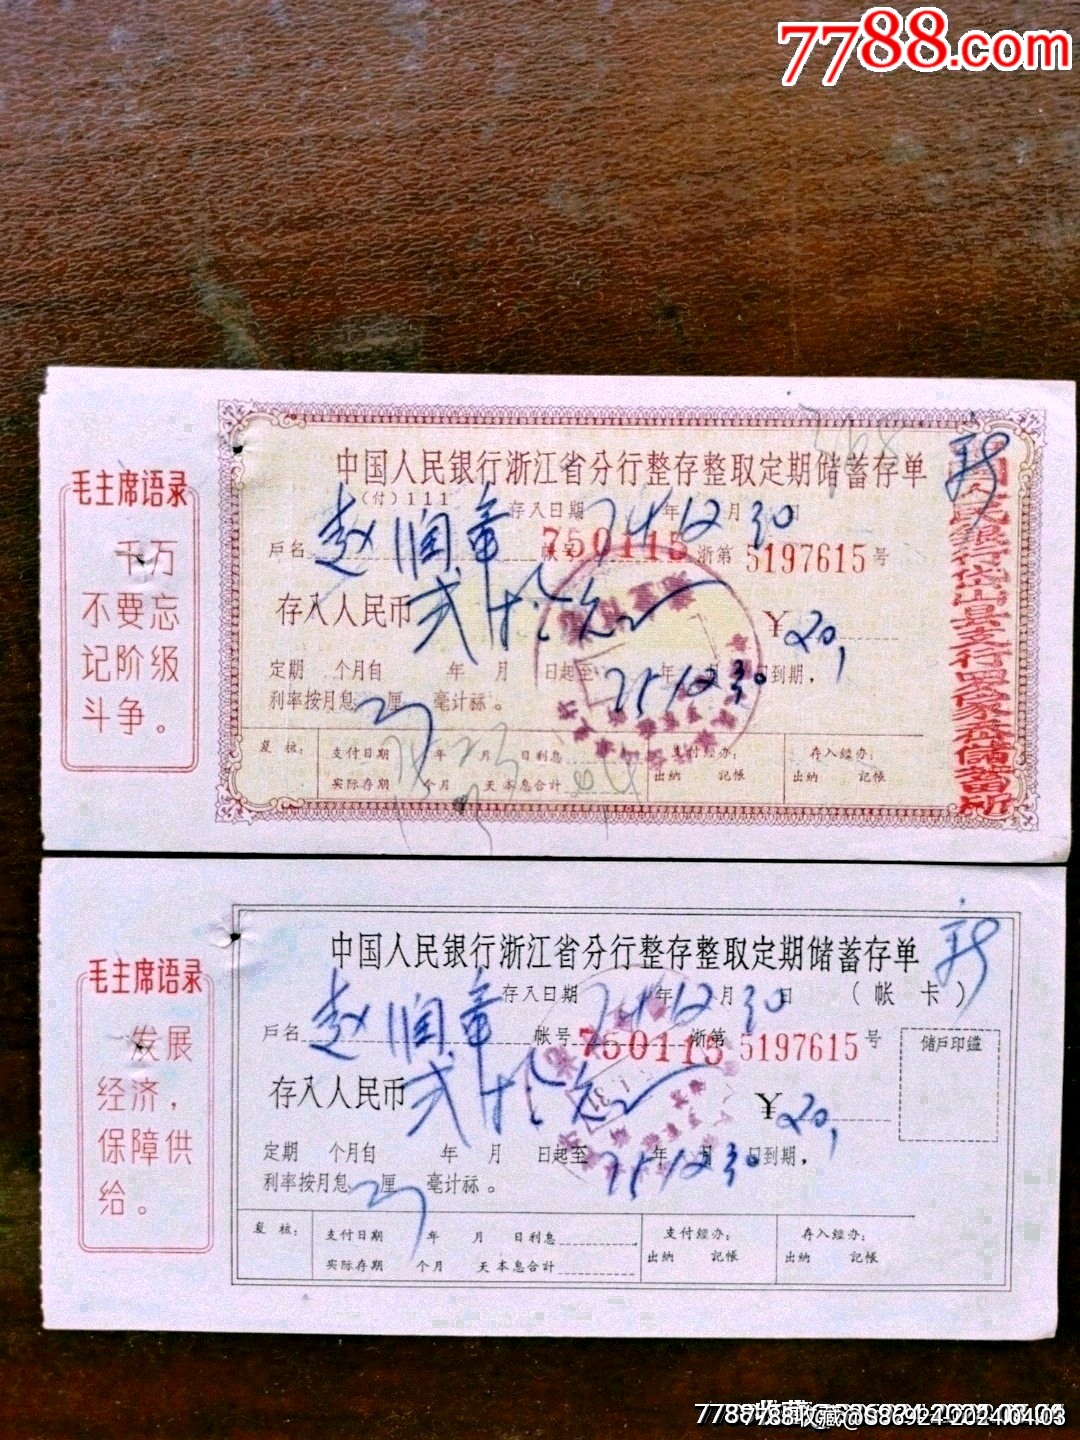 7788.com
中国人民银行浙江省分行整存整取定期储蓄存单
(付)111
存入日期 74年12月30日
户名 赵润章 帐号 750115 浙第 5197615 号
存入人民币 贰拾元 ¥20,
定期 个月自 年 月 日起至 75年12月30日到期,
利率按月息 厘 毫计祘。
复 核: 支付日期 年 月 日利息 支付经办: 存入经办:
实际存期 个月 天本息合计 出纳 记帐 出纳 记帐
毛主席语录
千万
不要忘
记阶级
斗争。
中国人民银行岱山县支行
储蓄所
中国人民银行浙江省分行整存整取定期储蓄存单
存入日期 74年12月30日 (帐卡)
户名 赵润章 帐号 750115 浙第 5197615 号
储户印鑑
存入人民币 贰拾元 ¥20,
定期 个月自 年 月 日起至 75年12月30日到期,
利率按月息 厘 毫计祘。
复 核: 支付日期 年 月 日利息 支付经办: 存入经办:
实际存期 个月 天本息合计 出纳 记帐 出纳 记帐
毛主席语录
发展
经济,
保障供
给。